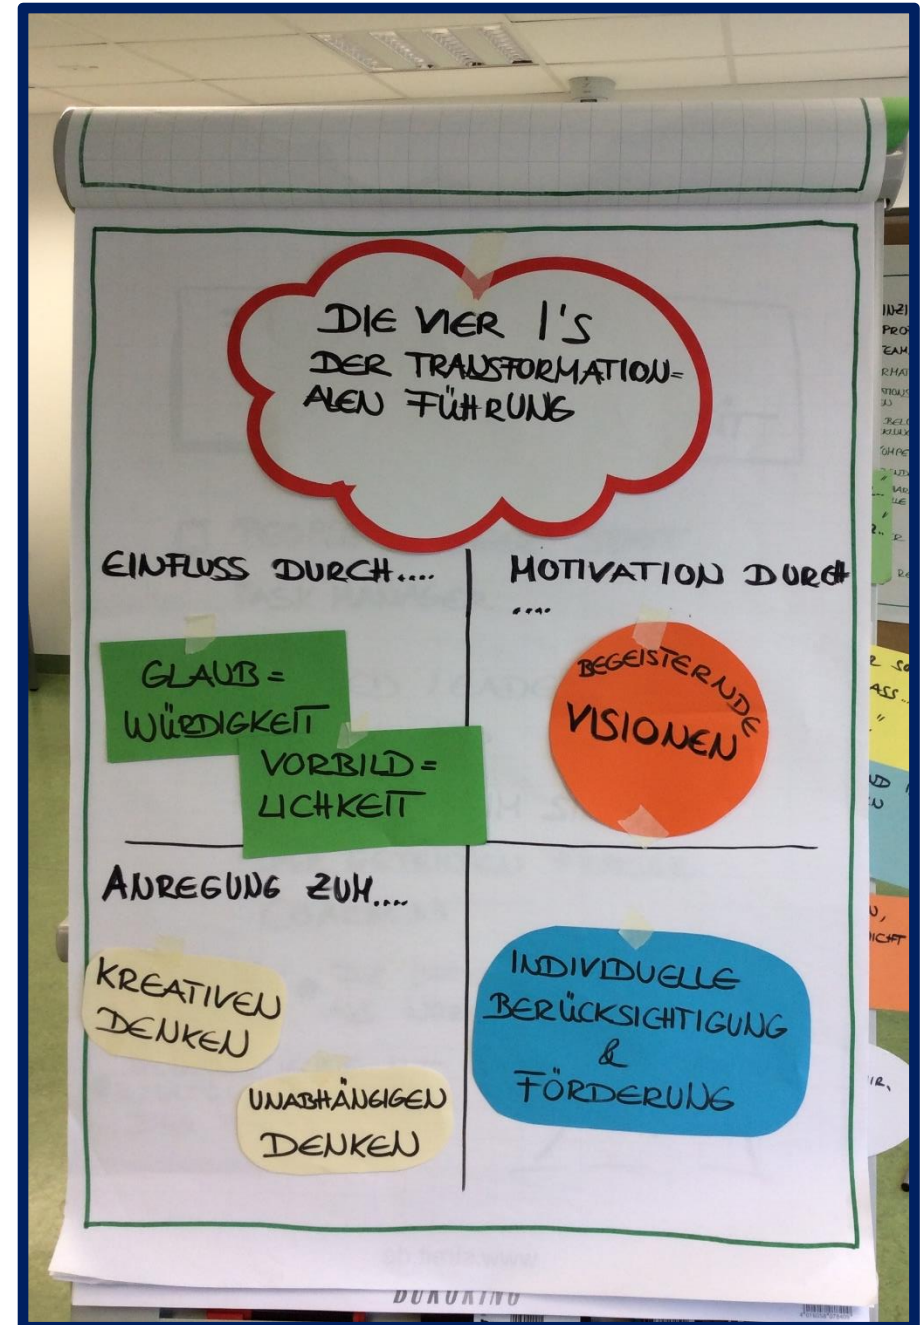 DIE VIER I'S
DER TRANSFORMATION=
ALEN FÜHRUNG
EINFLUSS DURCH....
GLAUB=
WÜRDIGKEIT
VORBILD=
LICHKEIT
MOTIVATION DURCH
....
BEGEISTERNDE
VISIONEN
ANREGUNG ZUM....
KREATIVEN
DENKEN
UNABHÄNGIGEN
DENKEN
INDIVIDUELLE
BERÜCKSICHTIGUNG
&
FÖRDERUNG